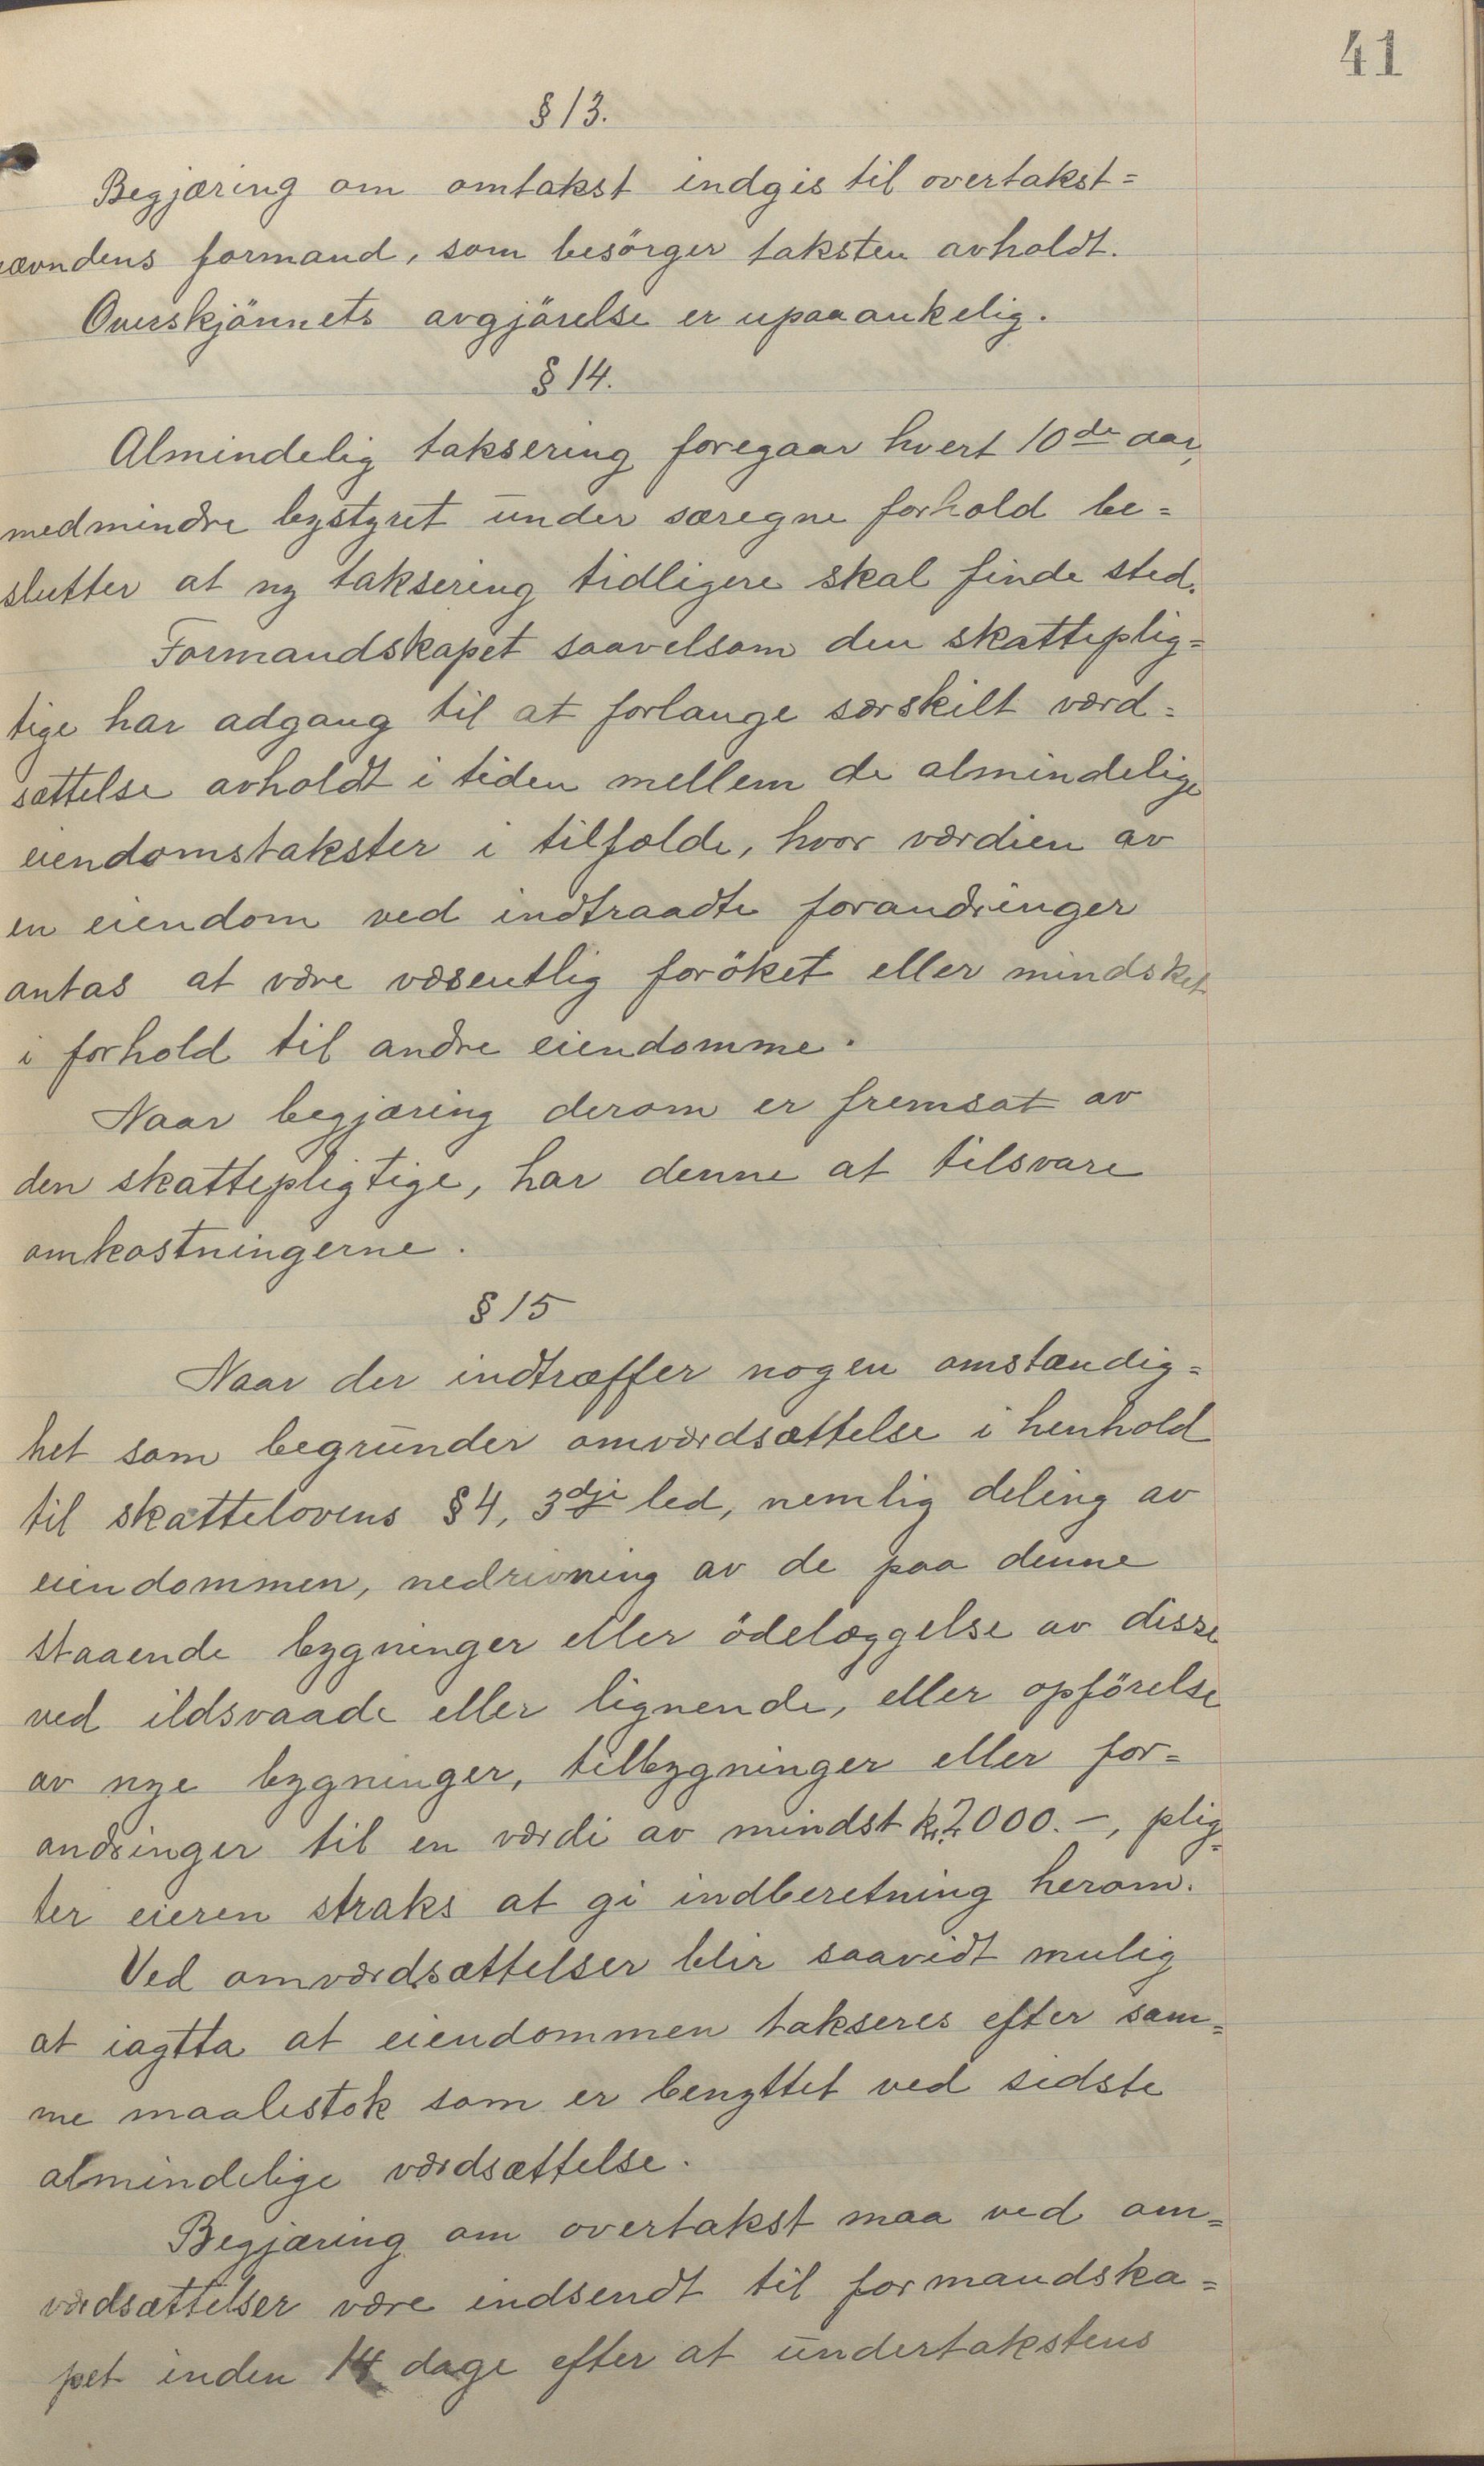 41
§ 13.
Begjæring om omtakst indgis til overtakst=
nævndens formand, som besörger taksten avholdt.
Overskjönnets avgjörelse er upaaankelig.
§ 14.
Almindelig taksering foregaar hvert 10de aar,
medmindre bystyret under særegne forhold be=
slutter at ny taksering tidligere skal finde sted.
Formandskapet saavelsom den skatteplig=
tige har adgang til at forlange særskilt værd=
sættelse avholdt i tiden mellem de almindelige
eiendomstakster i tilfælde, hvor værdien av
en eiendom ved indtraadte forandringer
antas at være væsentlig foröket eller mindsket
i forhold til andre eiendomme.
Naar begjæring derom er fremsat av
den skattepligtige, har denne at tilsvare
omkostningerne.
§ 15
Naar der indtræffer nogen omstændig=
het som begrunder omværdsættelse i henhold
til skattelovens § 4, 3dje led, nemlig deling av
eiendommen, nedrivning av de paa denne
staaende bygninger eller ödelæggelse av disse
ved ildsvaade eller lignende, eller opförelse
av nye bygninger, tilbygninger eller for=
andringer til en værdi av mindst kr. 2000.-, plig=
ter eieren straks at gi indberetning herom.
Ved omværdsættelser blir saavidt mulig
at iagtta at eiendommen takseres efter sam=
me maalestok som er benyttet ved sidste
almindelige værdsættelse.
Begjæring om overtakst maa ved om=
værdsættelser være indsendt til formandska=
pet inden 14 dage efter at undertakstens